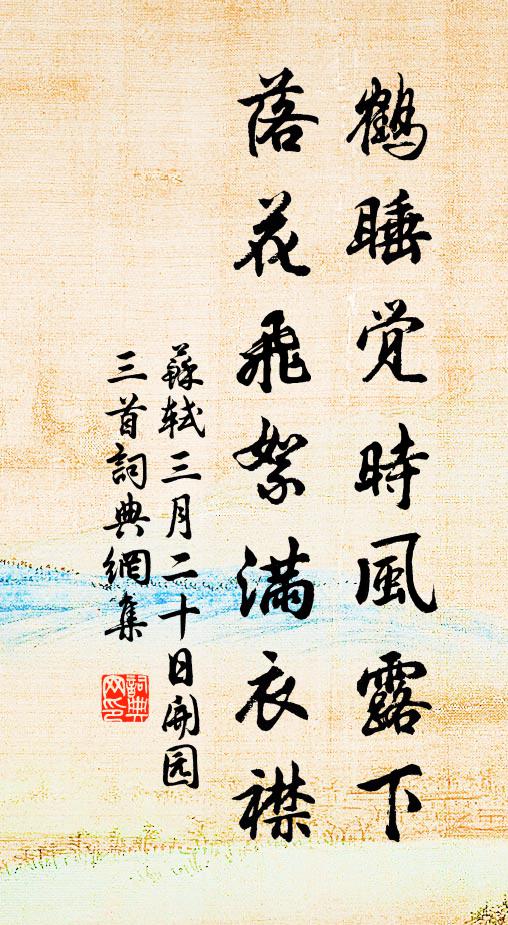 鹤睡觉時風露下
落花飛絮满衣襟
蘇轼三月二十日開园
三首詞典網集
詞典
网印